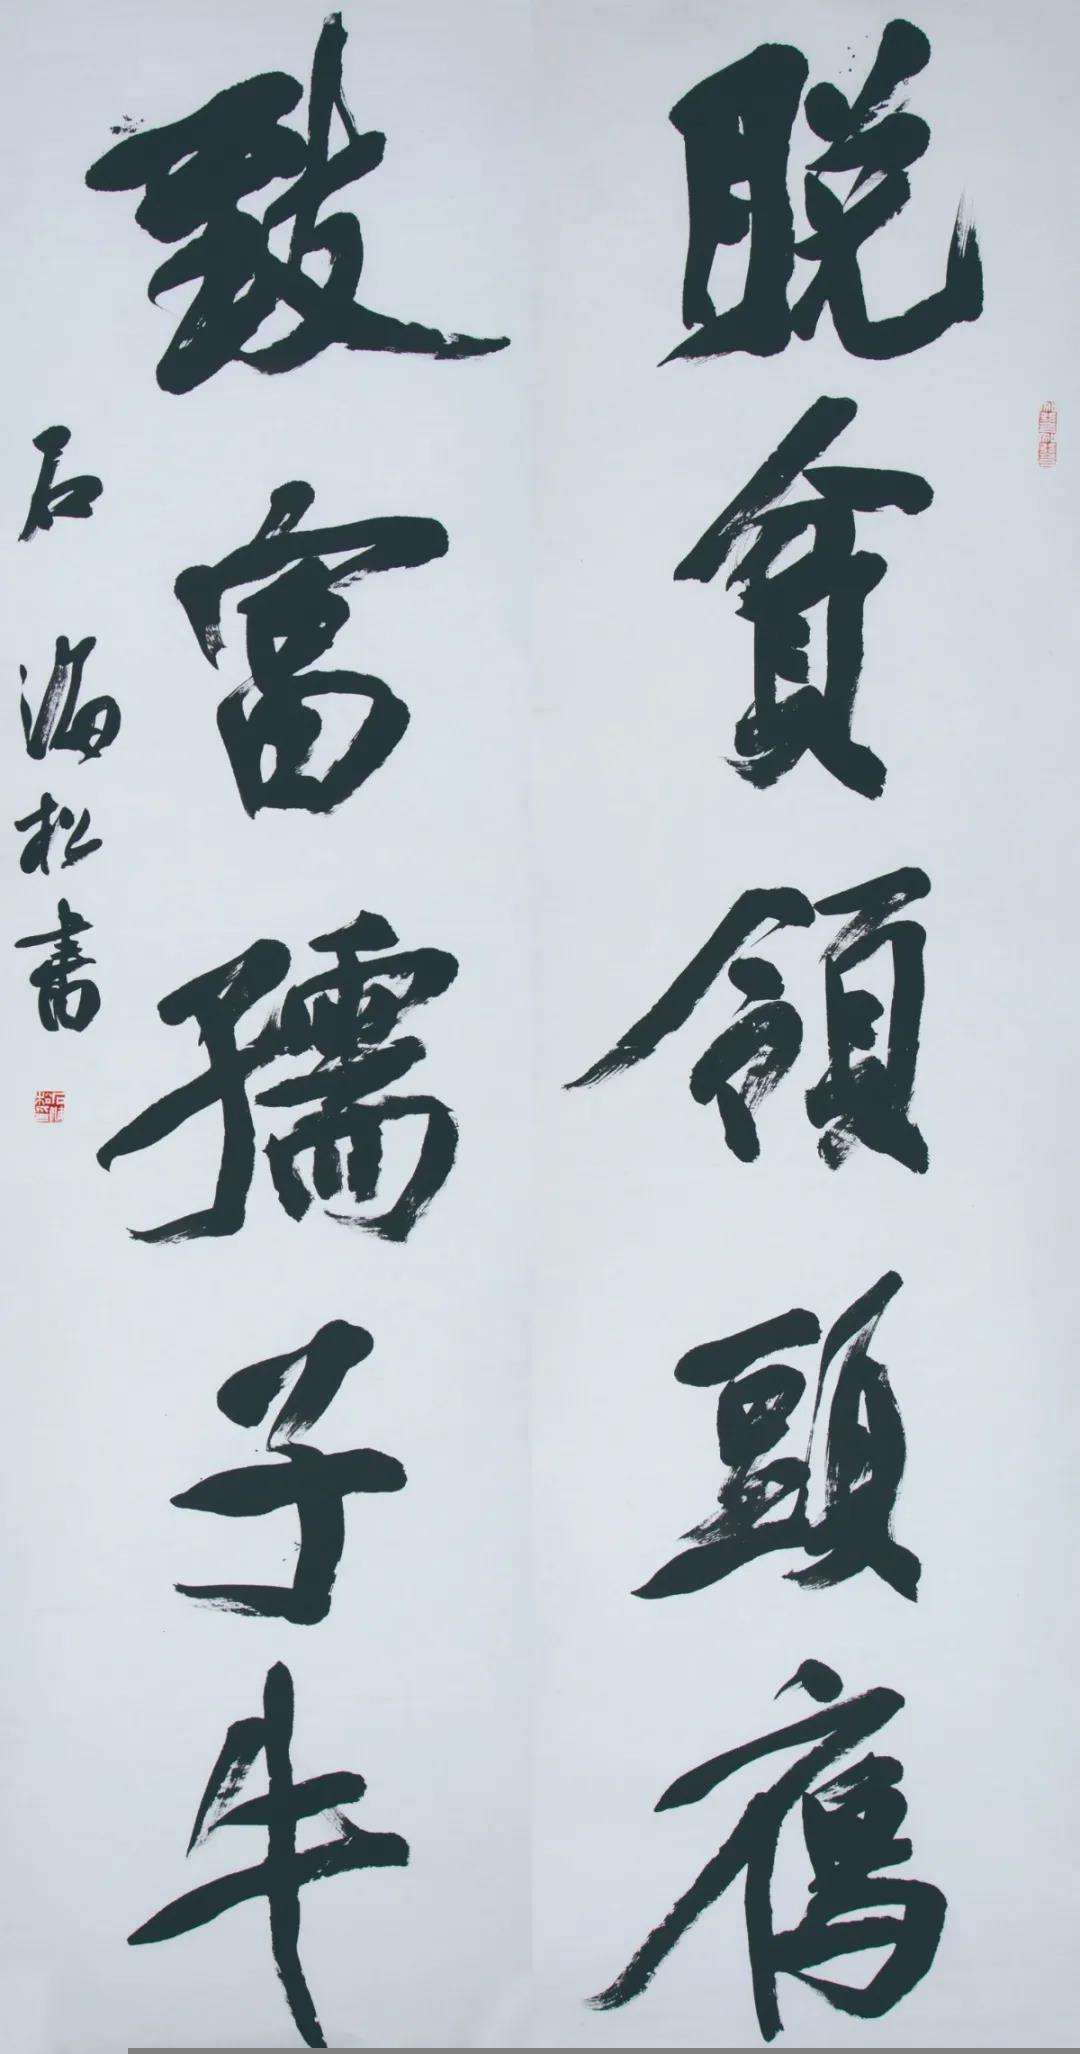 脫貧領頭鴈
致富孺子牛
石海松書